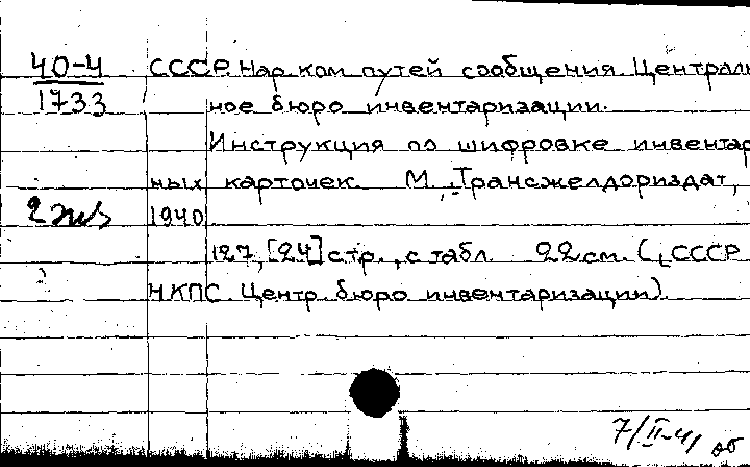 40-4
1733
СССР. Нар. ком. путей сообщения. Централь
ное бюро инвентаризации.
Инструкция по шифровке инвентар
ных карточек. М., Трансжелдориздат,
2 экз
1940
127, [24] стр., с табл. 22 см. (СССР
НКПС. Центр. бюро инвентаризации).
7/II-41 об